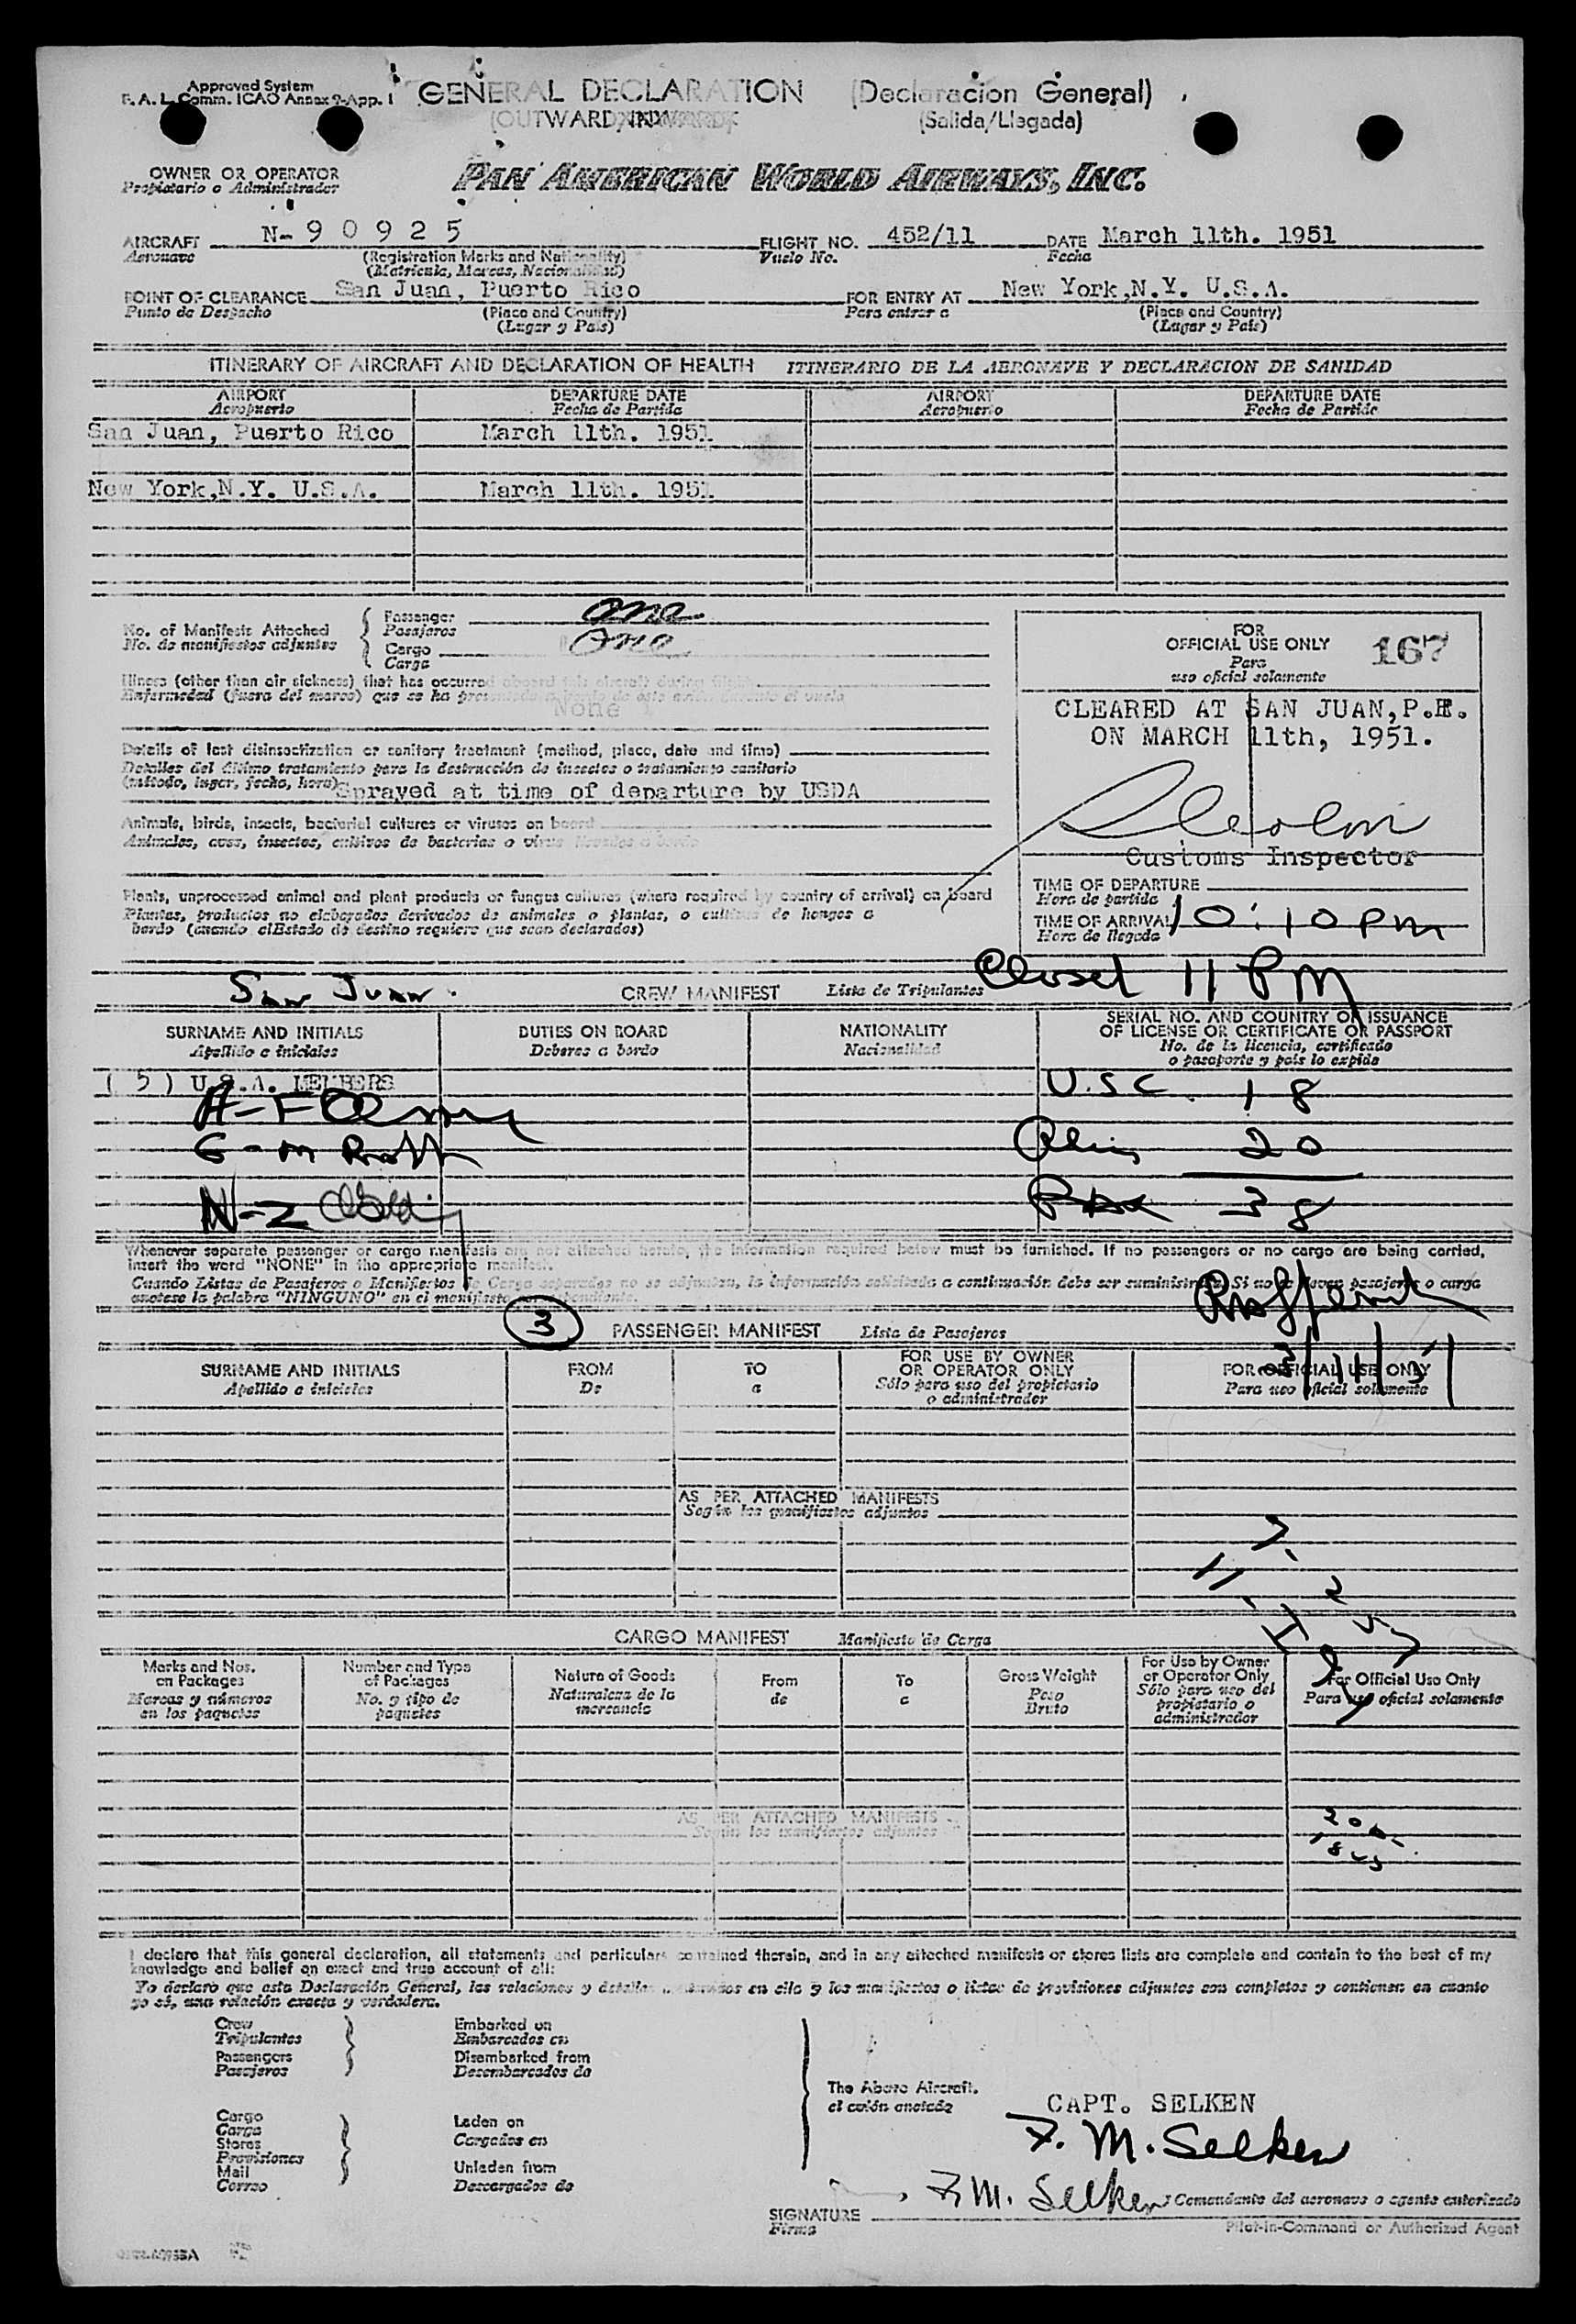 Approved System
F. A. L. Comm. ICAO Annex 9-App. 1
GENERAL DECLARATION (Declaracion General)
(OUTWARD/INWARD) (Salida/Llegada)
OWNER OR OPERATOR
Propietario o Administrador
PAN AMERICAN WORLD AIRWAYS, INC.
AIRCRAFT N-90925 FLIGHT NO. 452/11 DATE March 11th. 1951
Aeronave (Registration Marks and Nationality) Vuelo No. Fecha
(Matricula, Marcas, Nacionalidad)
POINT OF CLEARANCE San Juan, Puerto Rico FOR ENTRY AT New York,N.Y. U.S.A.
Punto de Despacho (Place and Country) Para entrar a (Place and Country)
(Lugar y Pais) (Lugar y Pais)
ITINERARY OF AIRCRAFT AND DECLARATION OF HEALTH ITINERARIO DE LA AERONAVE Y DECLARACION DE SANIDAD
AIRPORT DEPARTURE DATE AIRPORT DEPARTURE DATE
Aeropuerto Fecha de Partida Aeropuerto Fecha de Partida
San Juan, Puerto Rico March 11th. 1951
New York,N.Y. U.S.A. March 11th. 1951
No. of Manifests Attached
No. de manifiestos adjuntos
Passenger one
Pasajeros
Cargo One
Carga
Illness (other than air sickness) that has occurred aboard this aircraft during flight
Enfermedad (fuera del mareo) que se ha
None
Details of last disinsectization or sanitary treatment (method, place, date and time)
Detalles del último tratamiento para la destrucción de insectos o tratamiento sanitario
(método, lugar, fecha, hora) Sprayed at time of departure by USDA
Animals, birds, insects, bacterial cultures or viruses on board
Animales, aves, insectos, cultivos de bacterias o virus llevados a bordo
Plants, unprocessed animal and plant products or fungus cultures (where required by country of arrival) on board
Plantas, productos no elaborados derivados de animales o plantas, o cultivos de hongos a
bordo (cuando el Estado de destino requiere que sean declarados)
FOR
OFFICIAL USE ONLY 167
Para
uso oficial solamente
CLEARED AT SAN JUAN,P.R.
ON MARCH 11th, 1951.
Customs Inspector
TIME OF DEPARTURE
Hora de partida
TIME OF ARRIVAL 10:10 PM
Hora de llegada
Closed 11 PM
San Juan.
CREW MANIFEST Lista de Tripulantes
SURNAME AND INITIALS DUTIES ON BOARD NATIONALITY SERIAL NO. AND COUNTRY OF ISSUANCE
OF LICENSE OR CERTIFICATE OR PASSPORT
Apellido e iniciales Deberes a bordo Nacionalidad No. de la licencia, certificado
o pasaporte y país lo expide
( 5 ) U.S.A. MEMBERS
U.S.C. 18
20
38
Whenever separate passenger or cargo manifests are not attached hereto, the information required below must be furnished. If no passengers or no cargo are being carried,
insert the word "NONE" in the appropriate manifest.
Cuando Listas de Pasajeros o Manifiestos de Carga separados no se adjuntan, la información solicitada a continuación debe ser suministrada. Si no se llevan pasajeros o carga
anotese la palabra "NINGUNO" en el manifiesto correspondiente.
3
PASSENGER MANIFEST Lista de Pasajeros
3/11/51
SURNAME AND INITIALS FROM TO FOR USE BY OWNER
OR OPERATOR ONLY FOR OFFICIAL USE ONLY
Apellido e iniciales De a Sólo para uso del propietario
o administrador Para uso oficial solamente
AS PER ATTACHED MANIFESTS
Según los manifiestos adjuntos
CARGO MANIFEST Manifiesto de Carga
Marks and Nos.
on Packages
Marcas y números
en los paquetes
Number and Type
of Packages
No. y tipo de
paquetes
Nature of Goods
Naturaleza de la
mercancia
From
de
To
a
Gross Weight
Peso
Bruto
For Use by Owner
or Operator Only
Sólo para uso del
propietario o
administrador
For Official Use Only
Para uso oficial solamente
AS PER ATTACHED MANIFESTS
Según los manifiestos adjuntos
I declare that this general declaration, all statements and particulars contained therein, and in any attached manifests or stores lists are complete and contain to the best of my
knowledge and belief an exact and true account of all:
Yo declaro que esta Declaración General, las relaciones y detalles contenidos en ella y los manifiestos o listas de provisiones adjuntos son completos y contienen en cuanto
yo sé, una relación exacta y verdadera.
Crew
Tripulantes
Passengers
Pasajeros
Embarked on
Embarcados en
Disembarked from
Desembarcados de
Cargo
Carga
Stores
Provisiones
Mail
Correo
Laden on
Cargados en
Unladen from
Descargados de
The Above Aircraft.
CAPT. SELKEN
F. M. Selken
F. M. Selken
SIGNATURE
Firma
Comandante del aeronave o agente autorizado
Pilot-in-Command or Authorized Agent